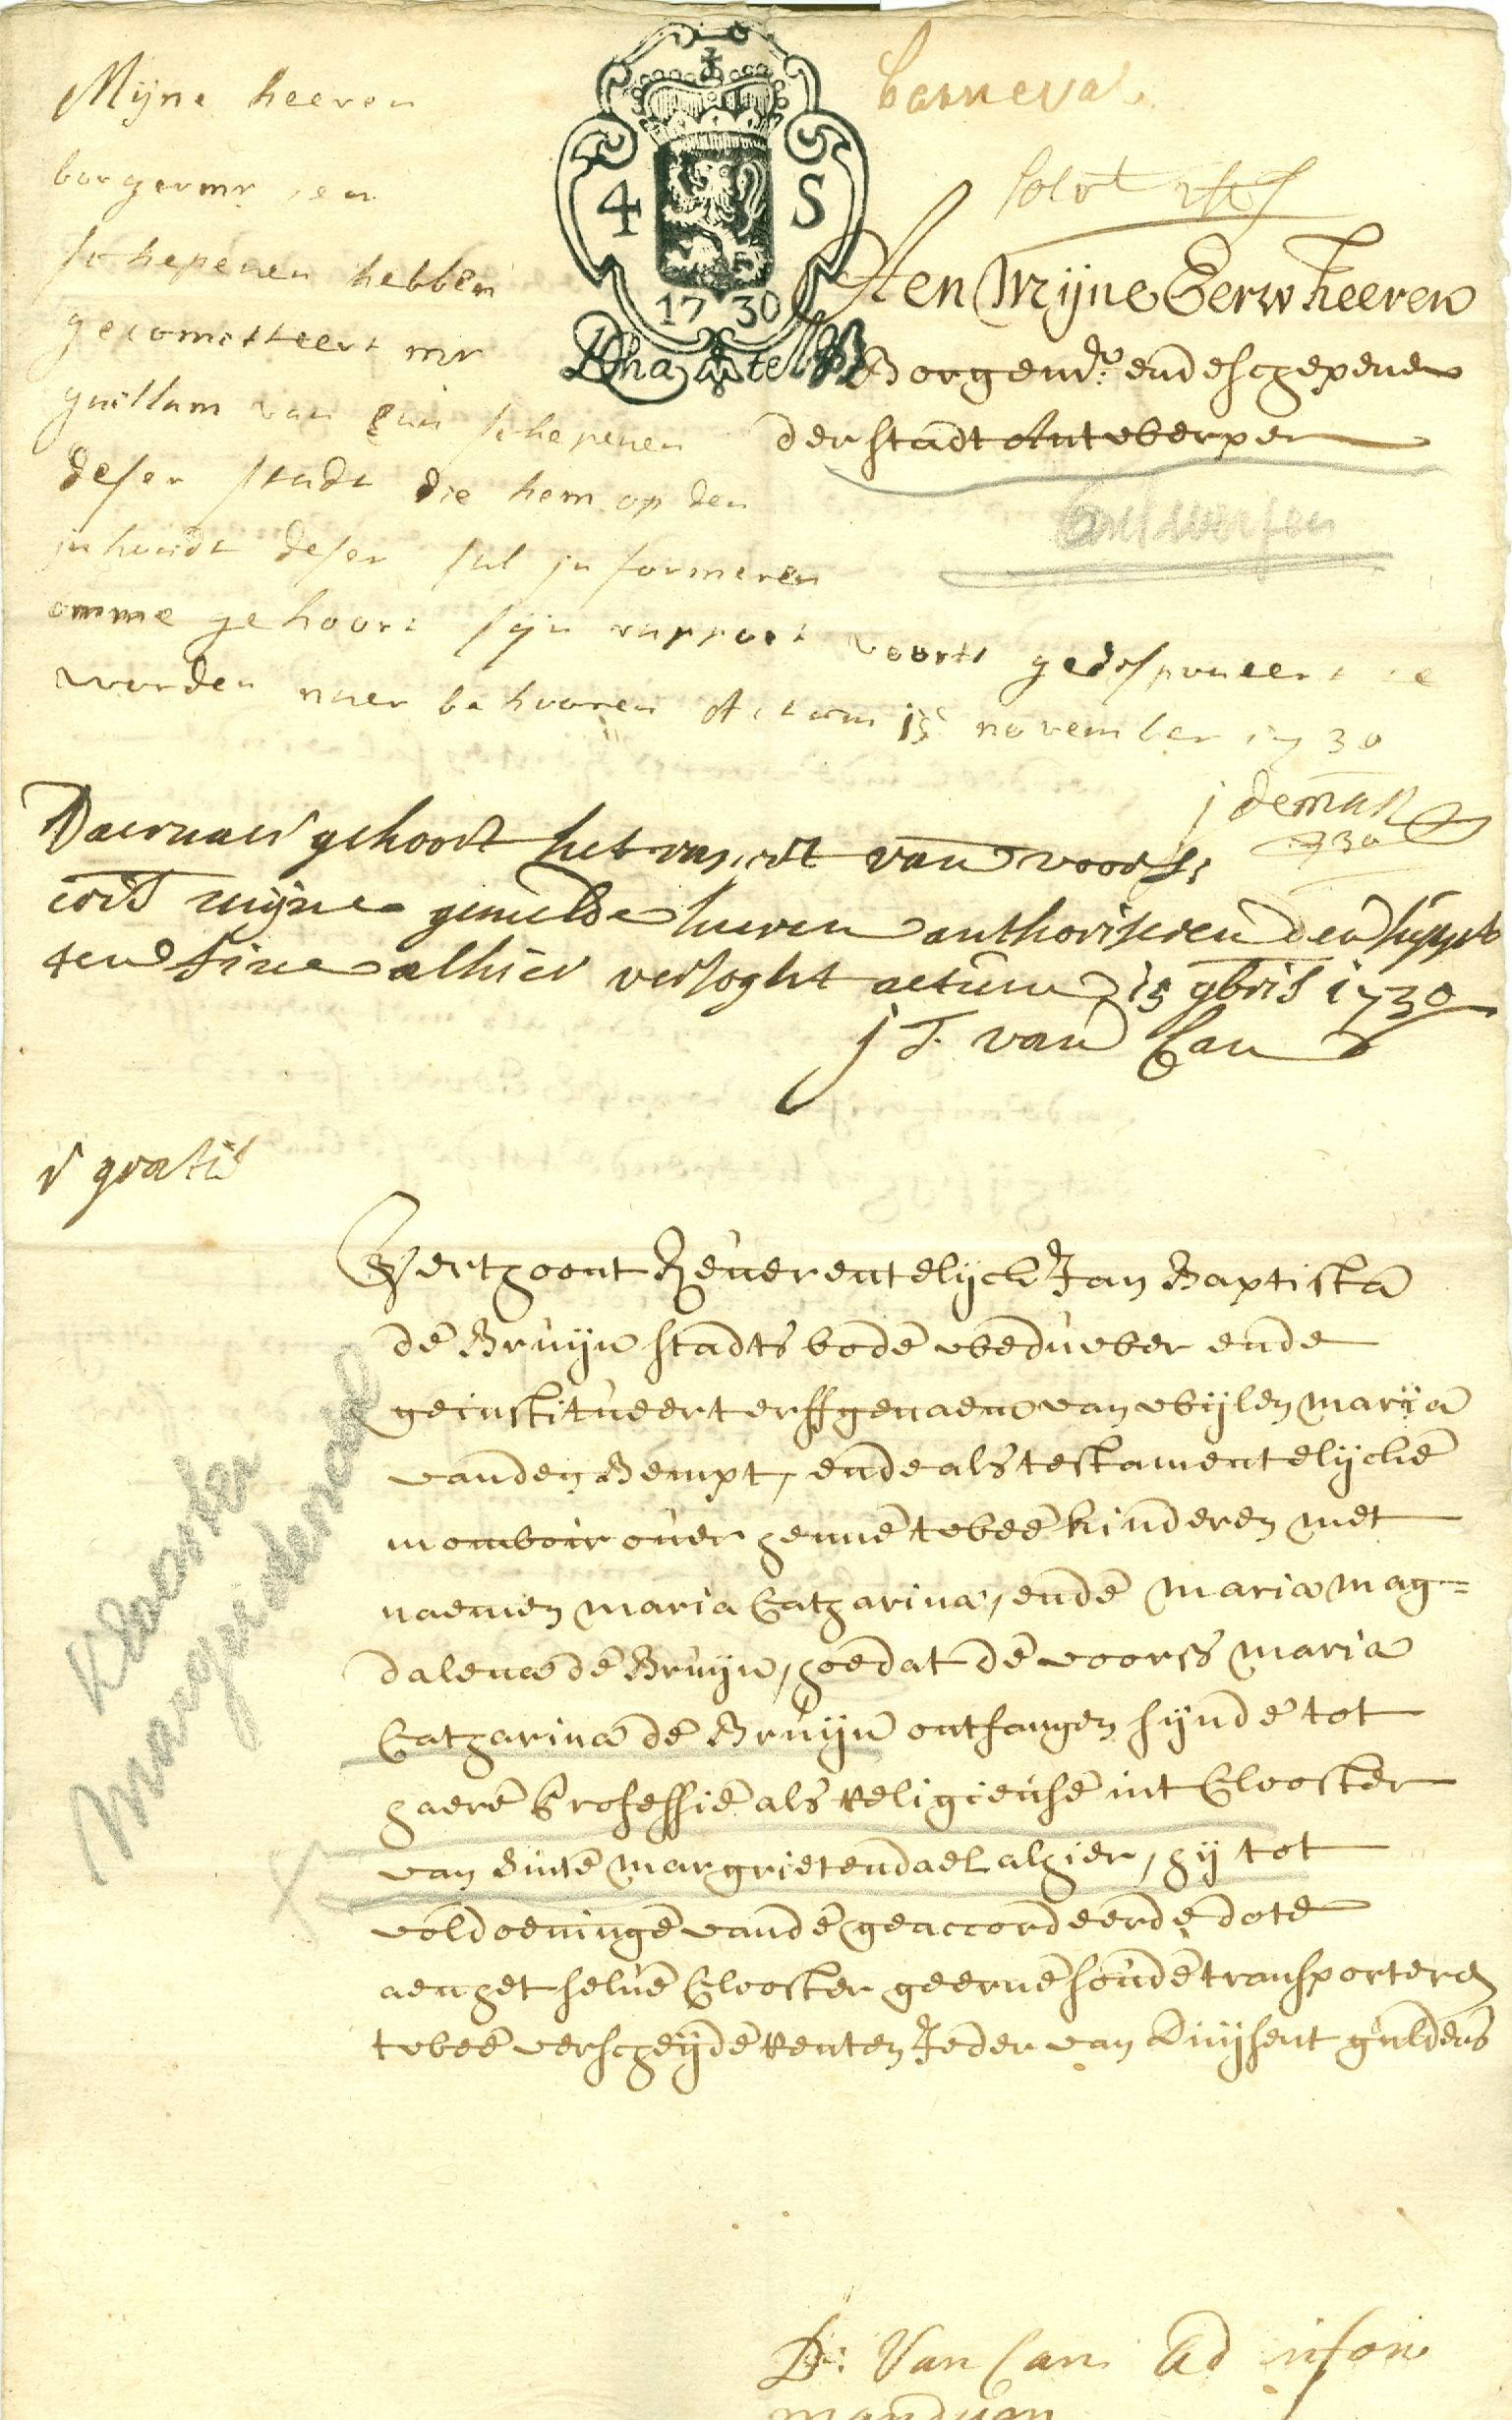 Mijne heeren
borgermrs en
schepenen hebben
gecomitteert mr
guilliam van schepenen
deser stadt die hem op den
inhoudt deser sal informeren
omme gehoort sijn rapport voorts gedisponeert te
worden naer behooren Actum 15 november 1730
4 S
1730
Aen Mijne Eerw heeren
Borgemrs ende schepenen
der stadt Antwerpen
Antwerpen
Daernaer gehoort het rapport van voors:
coris mijne gemelde heeren authoriseren den suppt
ten fine alhier versoght actum 15 9bris 1730
j T. van Can
gratis
Verthoont Reverentelijck Jan Baptista
de Bruijn stadts bode weduwer ende
geinstitueert erffgenaem van wijlen marija
vanden Bempt, ende als testamentelijcke
momboir over henne twee kinderen met
naemen maria Catharina, ende maria mag=
dalena de Bruijn, hoe dat de voors maria
Catharina de Bruijn ontfangen sijnde tot
haere Professie als Religieuse int Clooster
van Sinte margrietendael alhier, hij tot
voldoeninge vande geaccordeerde dote
aen het selve Clooster geerne soude transporteren
twee verscheijde Renten Ieder van Duijsent guldens
Klooster
Margrietendael
Dr: Van Can Ad infor
mandum